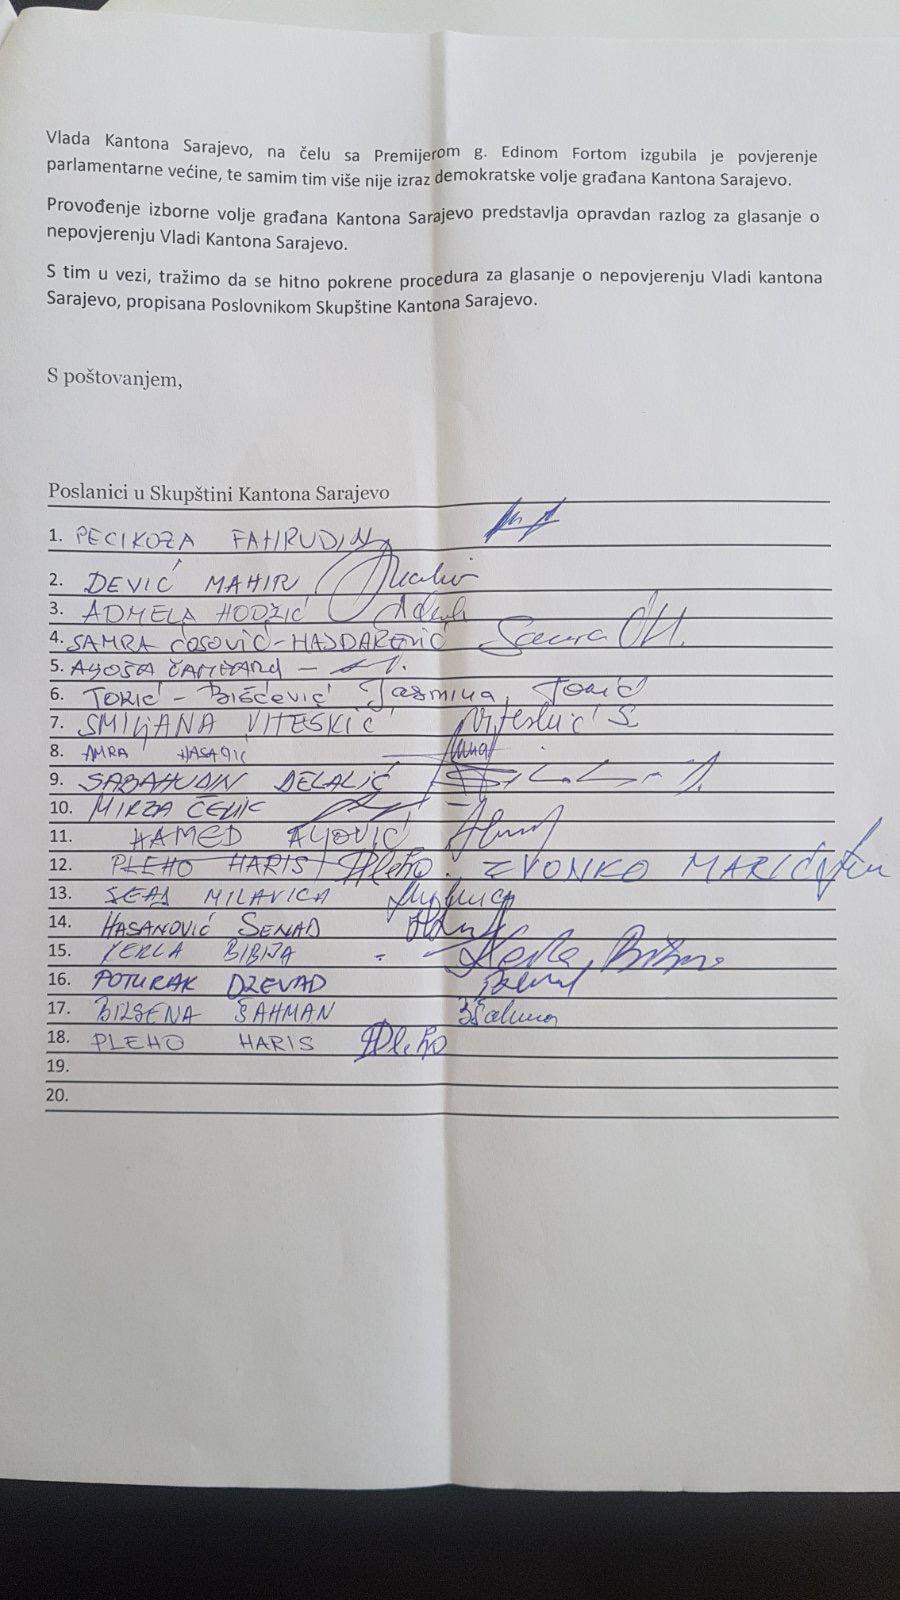 Vlada Kantona Sarajevo, na čelu sa Premijerom g. Edinom Fortom izgubila je povjerenje
parlamentarne većine, te samim tim više nije izraz demokratske volje građana Kantona Sarajevo.
Provođenje izborne volje građana Kantona Sarajevo predstavlja opravdan razlog za glasanje o
nepovjerenju Vladi Kantona Sarajevo.
S tim u vezi, tražimo da se hitno pokrene procedura za glasanje o nepovjerenju Vladi kantona
Sarajevo, propisana Poslovnikom Skupštine Kantona Sarajevo.
S poštovanjem,
Poslanici u Skupštini Kantona Sarajevo
1. PECIKOZA FAHRUDIN
2. DEVIĆ MAHIR
3. ADMELA HODŽIĆ
4. SAMRA ĆOSOVIĆ-HAJDAREVIĆ
5.
6. TOKIĆ - BIŠĆEVIĆ Jasmina, Tokić
7. SMILJANA VITESKIĆ Viteskić S
8. AMRA HASAGIĆ
9. SABAHUDIN DELALIĆ
10. MIRZA ČELIK
11. HAMED ALJOVIĆ
12. PLEHO HARIS Pleho ZVONKO MARIĆ
13. SEAD MILAVICA
14. HASANOVIĆ SENAD
15. KERLA BIBIJA - Kerla
16. POTURAK DŽEVAD
17. BILSENA ŠAHMAN BŠahman
18. PLEHO HARIS Pleho
19.
20.